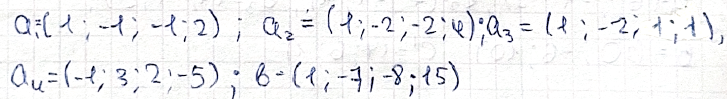 a₁(1; -1; -1; 2); a₂ = (1; -2; -2; 4); a₃ = (1; -2; 1; 1),
a₄ = (-1; 3; 2; -5); b = (1; -7; -8; 15)